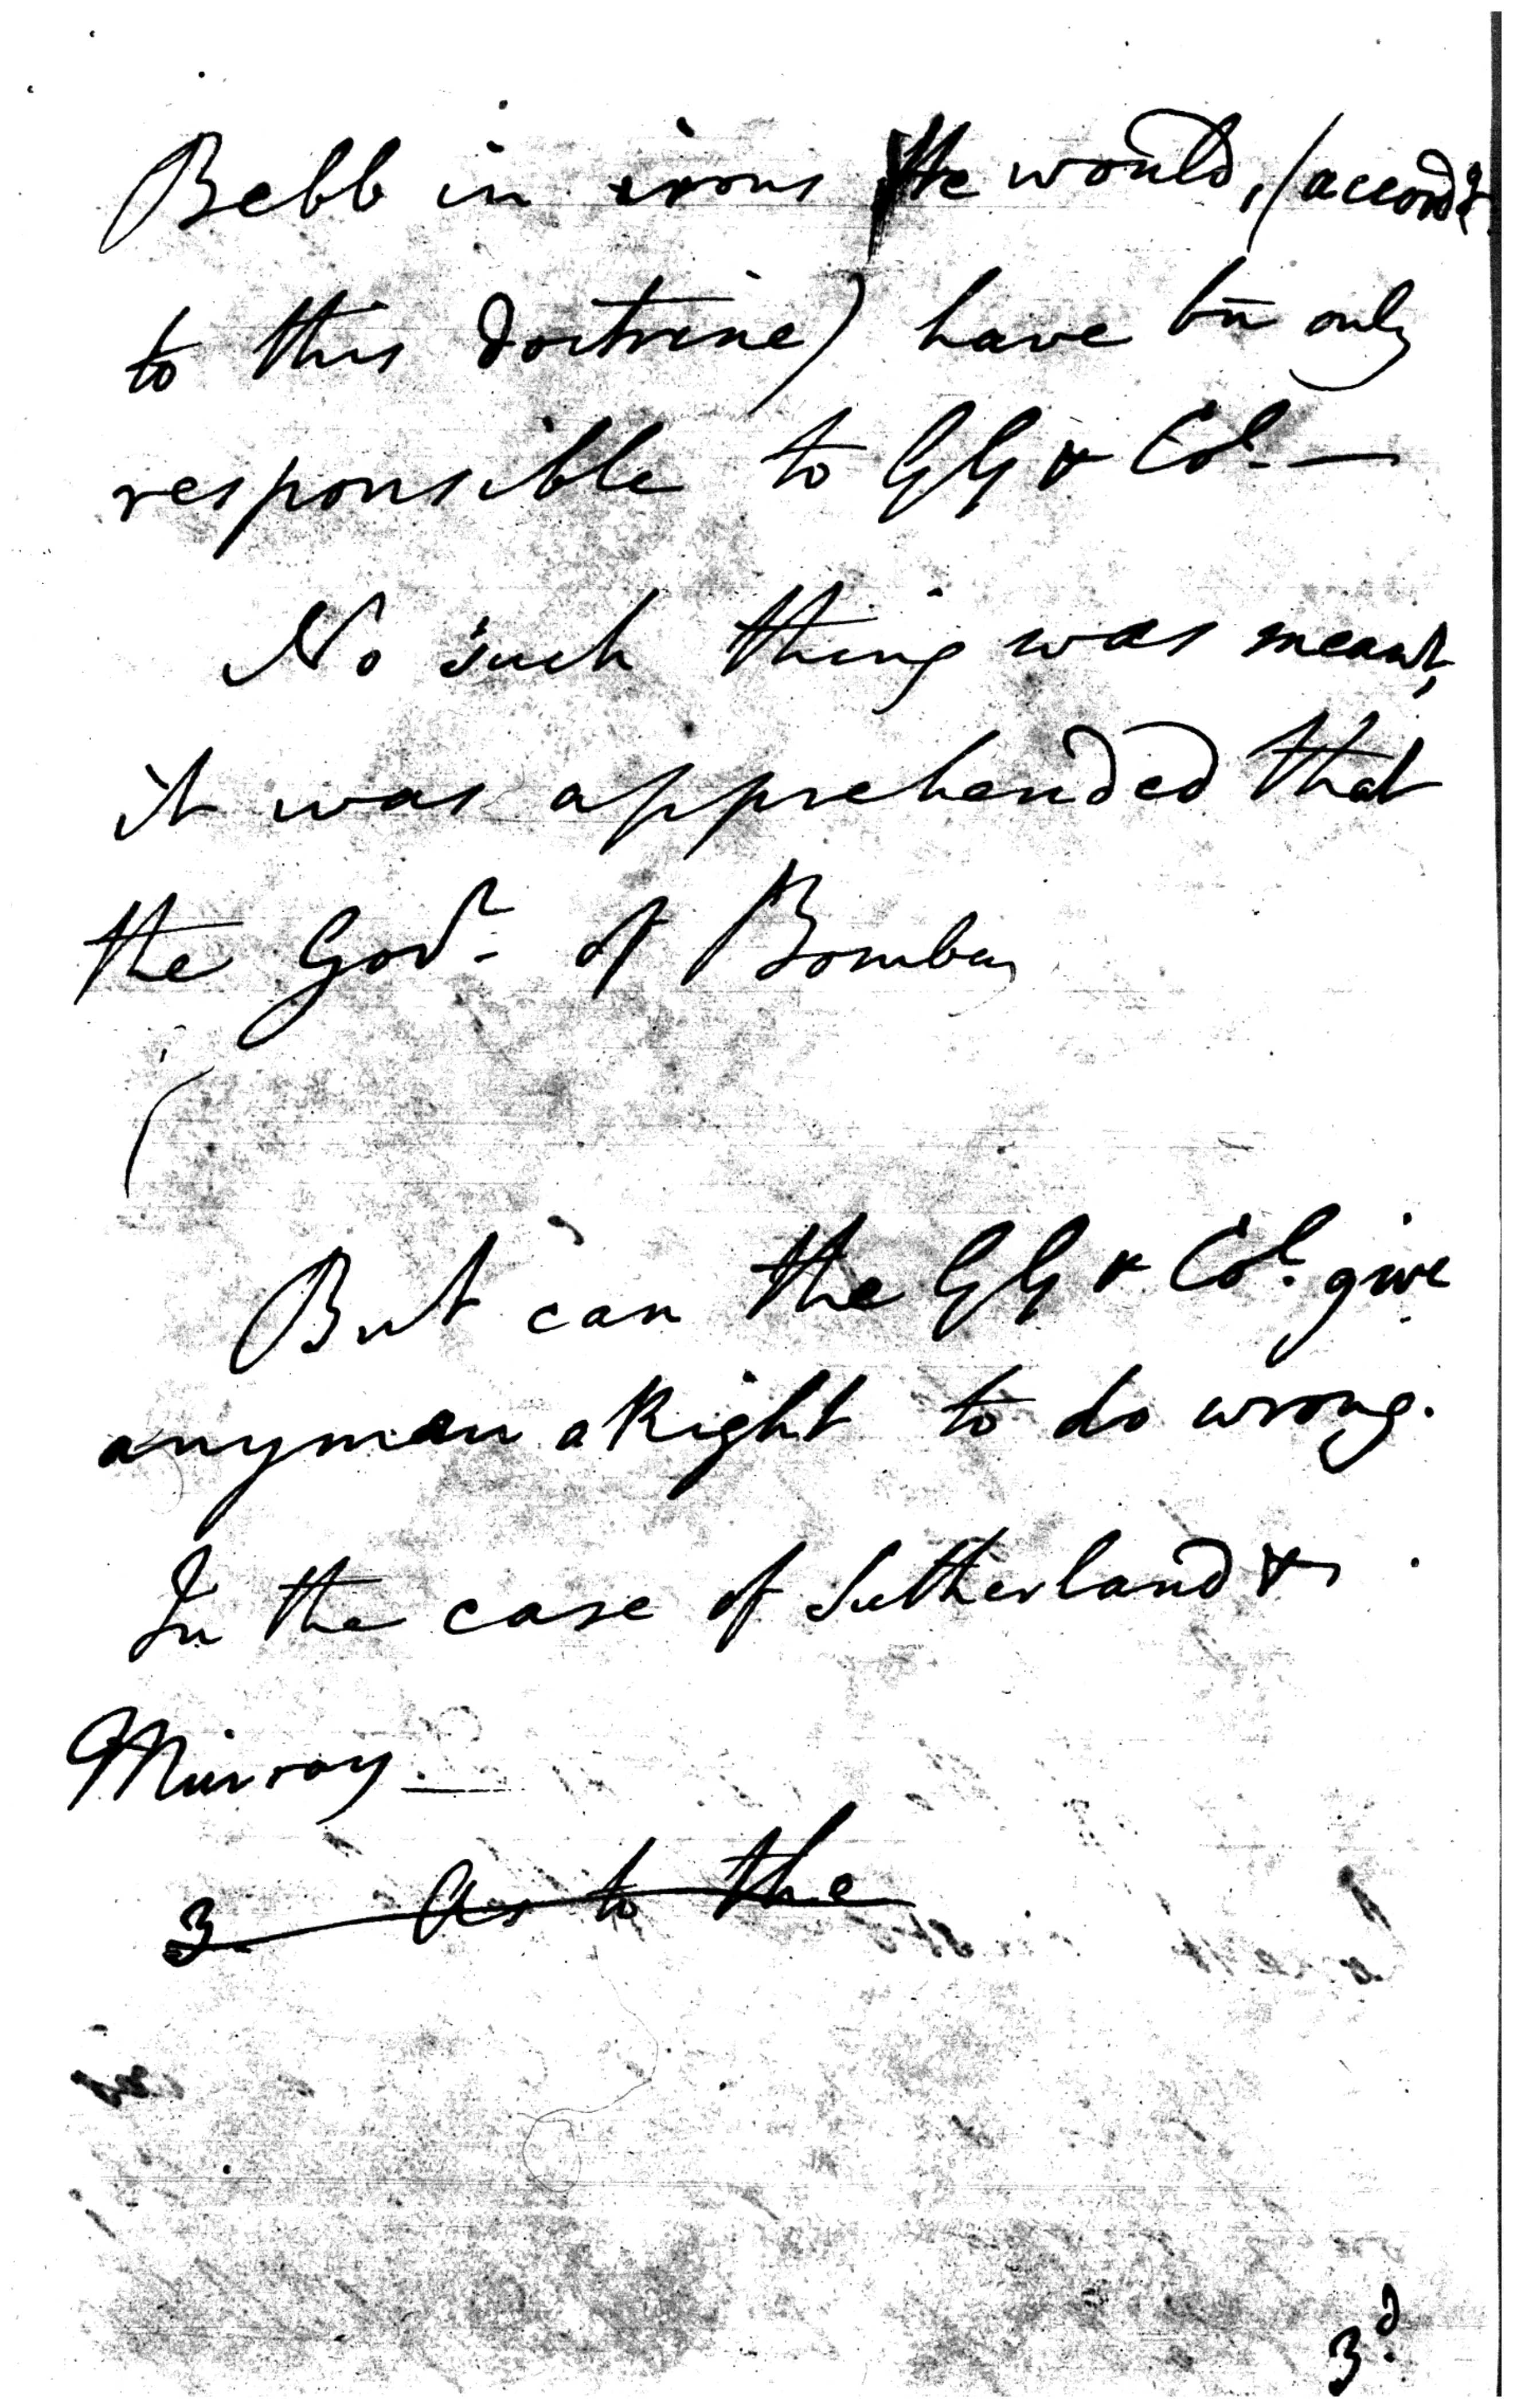 Bebb in irons He would, (accordg.
to this doctrine) have bn only
responsible to GG & Col. —
No such thing was meant,
it was apprehended that
the Govr. of Bombay
(
But can the GG & Col. give
any man a Right to do wrong.
In the case of Sutherland &
Murray —
3. As to the
3d.